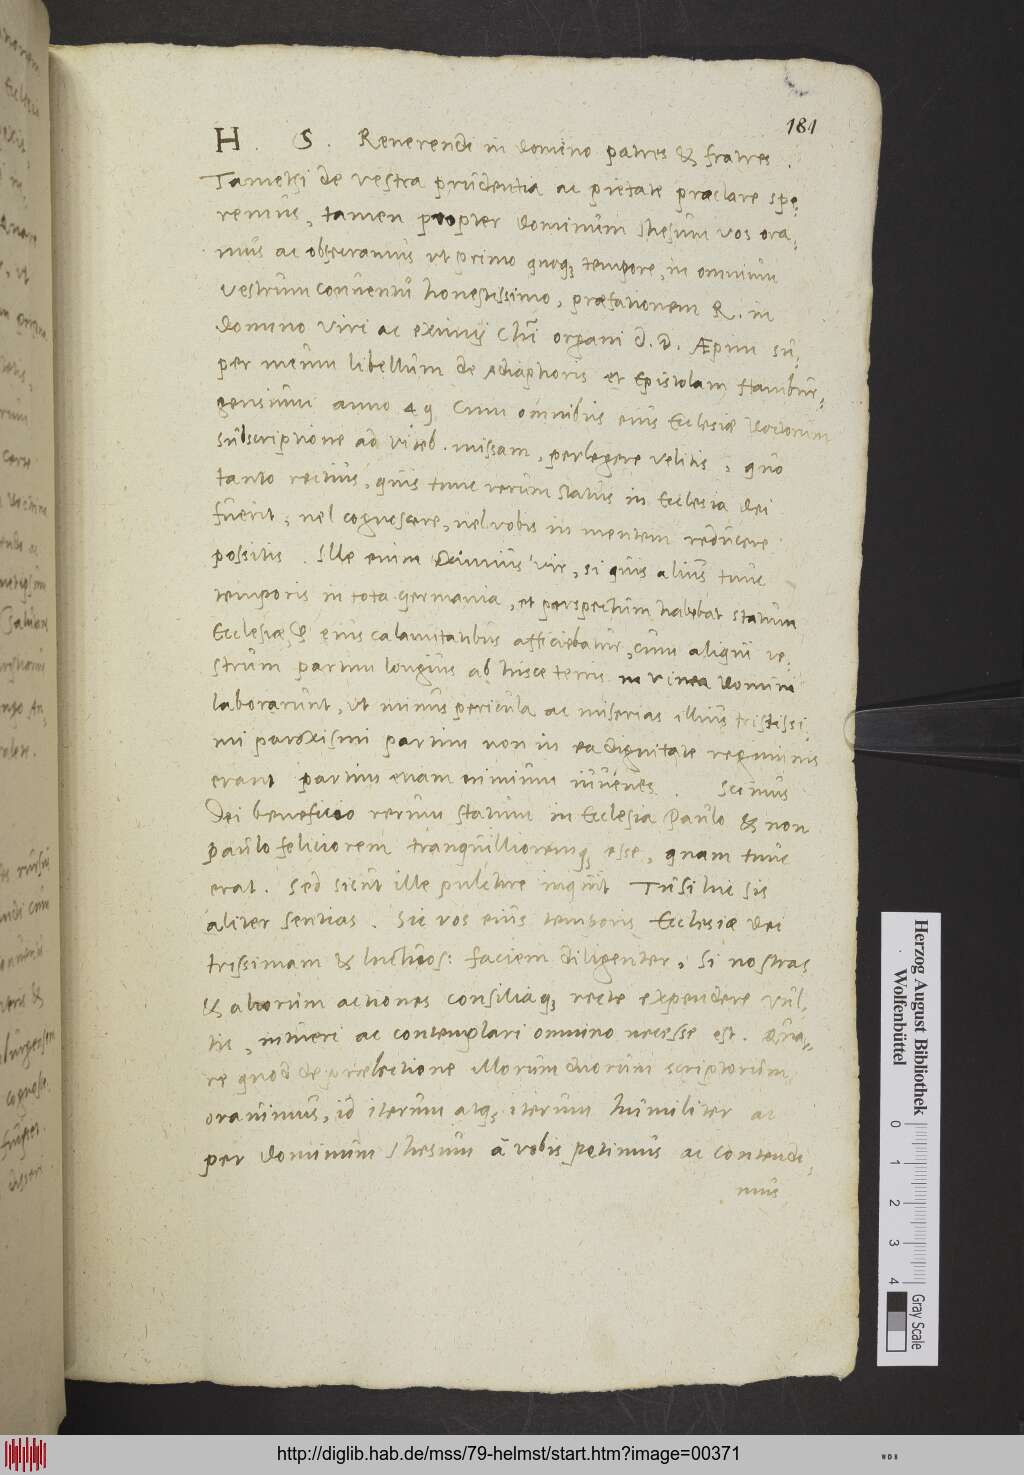 181
H. S. Reuerendi in domino patres & fratres.
Tametsi de vestra prudentia ac pietate præclare spe,
remus, tamen propter dominum Ihesum vos ora,
mus ac obsecramus ut primo quoq; tempore, in omnium
vestrum conuentu honestissimo, præfationem R. in
domino viri ac eximij Chri organi d. D. Æpini su,
per meum libellum de Adiaphoris et Epistolam Hambur,
gensium anno 49 cum omnibus eius Ecclesiæ doctorum
subscriptione ad Viteb. missam, perlegere velitis, quo
tanto rectius, quis tunc rerum status in Ecclesia dei
fuerit, uel cognoscere, uel vobis in mentem reducere
possitis. Ille enim Diuinus vir, si quis alius tunc
temporis in tota germania, et perspectum habebat statum
Ecclesiæ & eius calamitatibus afficiebatur, cum aliqui ve,
strum partim longius ab hisce terris in vinea domini
laborarunt, ut minus pericula ac miserias illius tristissi,
mi paroxismi partim non in ea dignitate regiminis
erant partim etiam nimium iuuenes. Scimus
Dei beneficio rerum statum in Ecclesia paulo & non
paulo feliciorem tranquilliioremq; esse, quam tunc
erat. Sed sicut ille pulchre inquit Tu si hic sis
aliter sentias. Sic vos eius temporis Ecclesiæ dei
trissimam & faciem diligenter, si nostras
& aliorum actiones consiliaq; recte expendere vul,
tis, intueri ac contemplari omnino necesse est. Qua,
re quod de prælectione illorum duorum scriptorum
orauimus, id iterum atq; iterum humiliter ac
per dominum Ihesum à vobis petimus ac contendi,
mus
Herzog August Bibliothek
Wolfenbüttel
0 1 2 3 4
Gray Scale
http://diglib.hab.de/mss/79-helmst/start.htm?image=00371
WDB